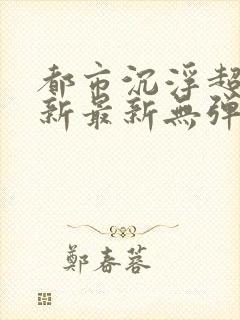 都市沉浮超
新最新無弹
鄭春蓉